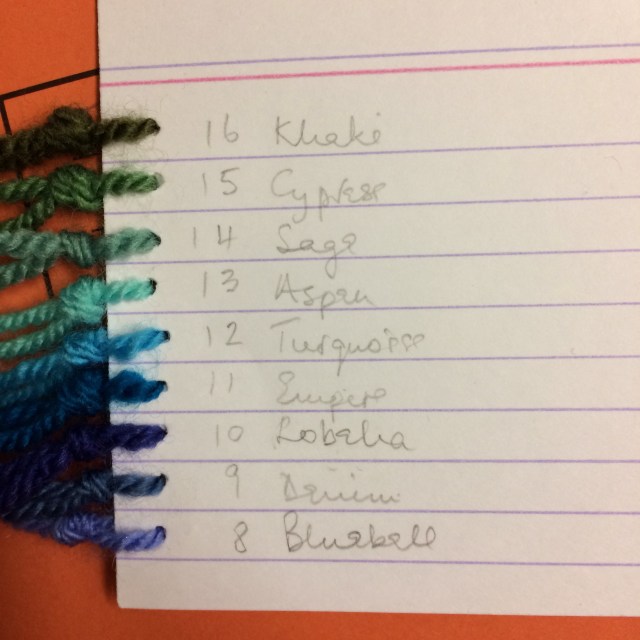 16 Khaki
15 Cypress
14 Sage
13 Aspen
12 Turquoise
11 Empire
10 Lobelia
9 Denim
8 Bluebell